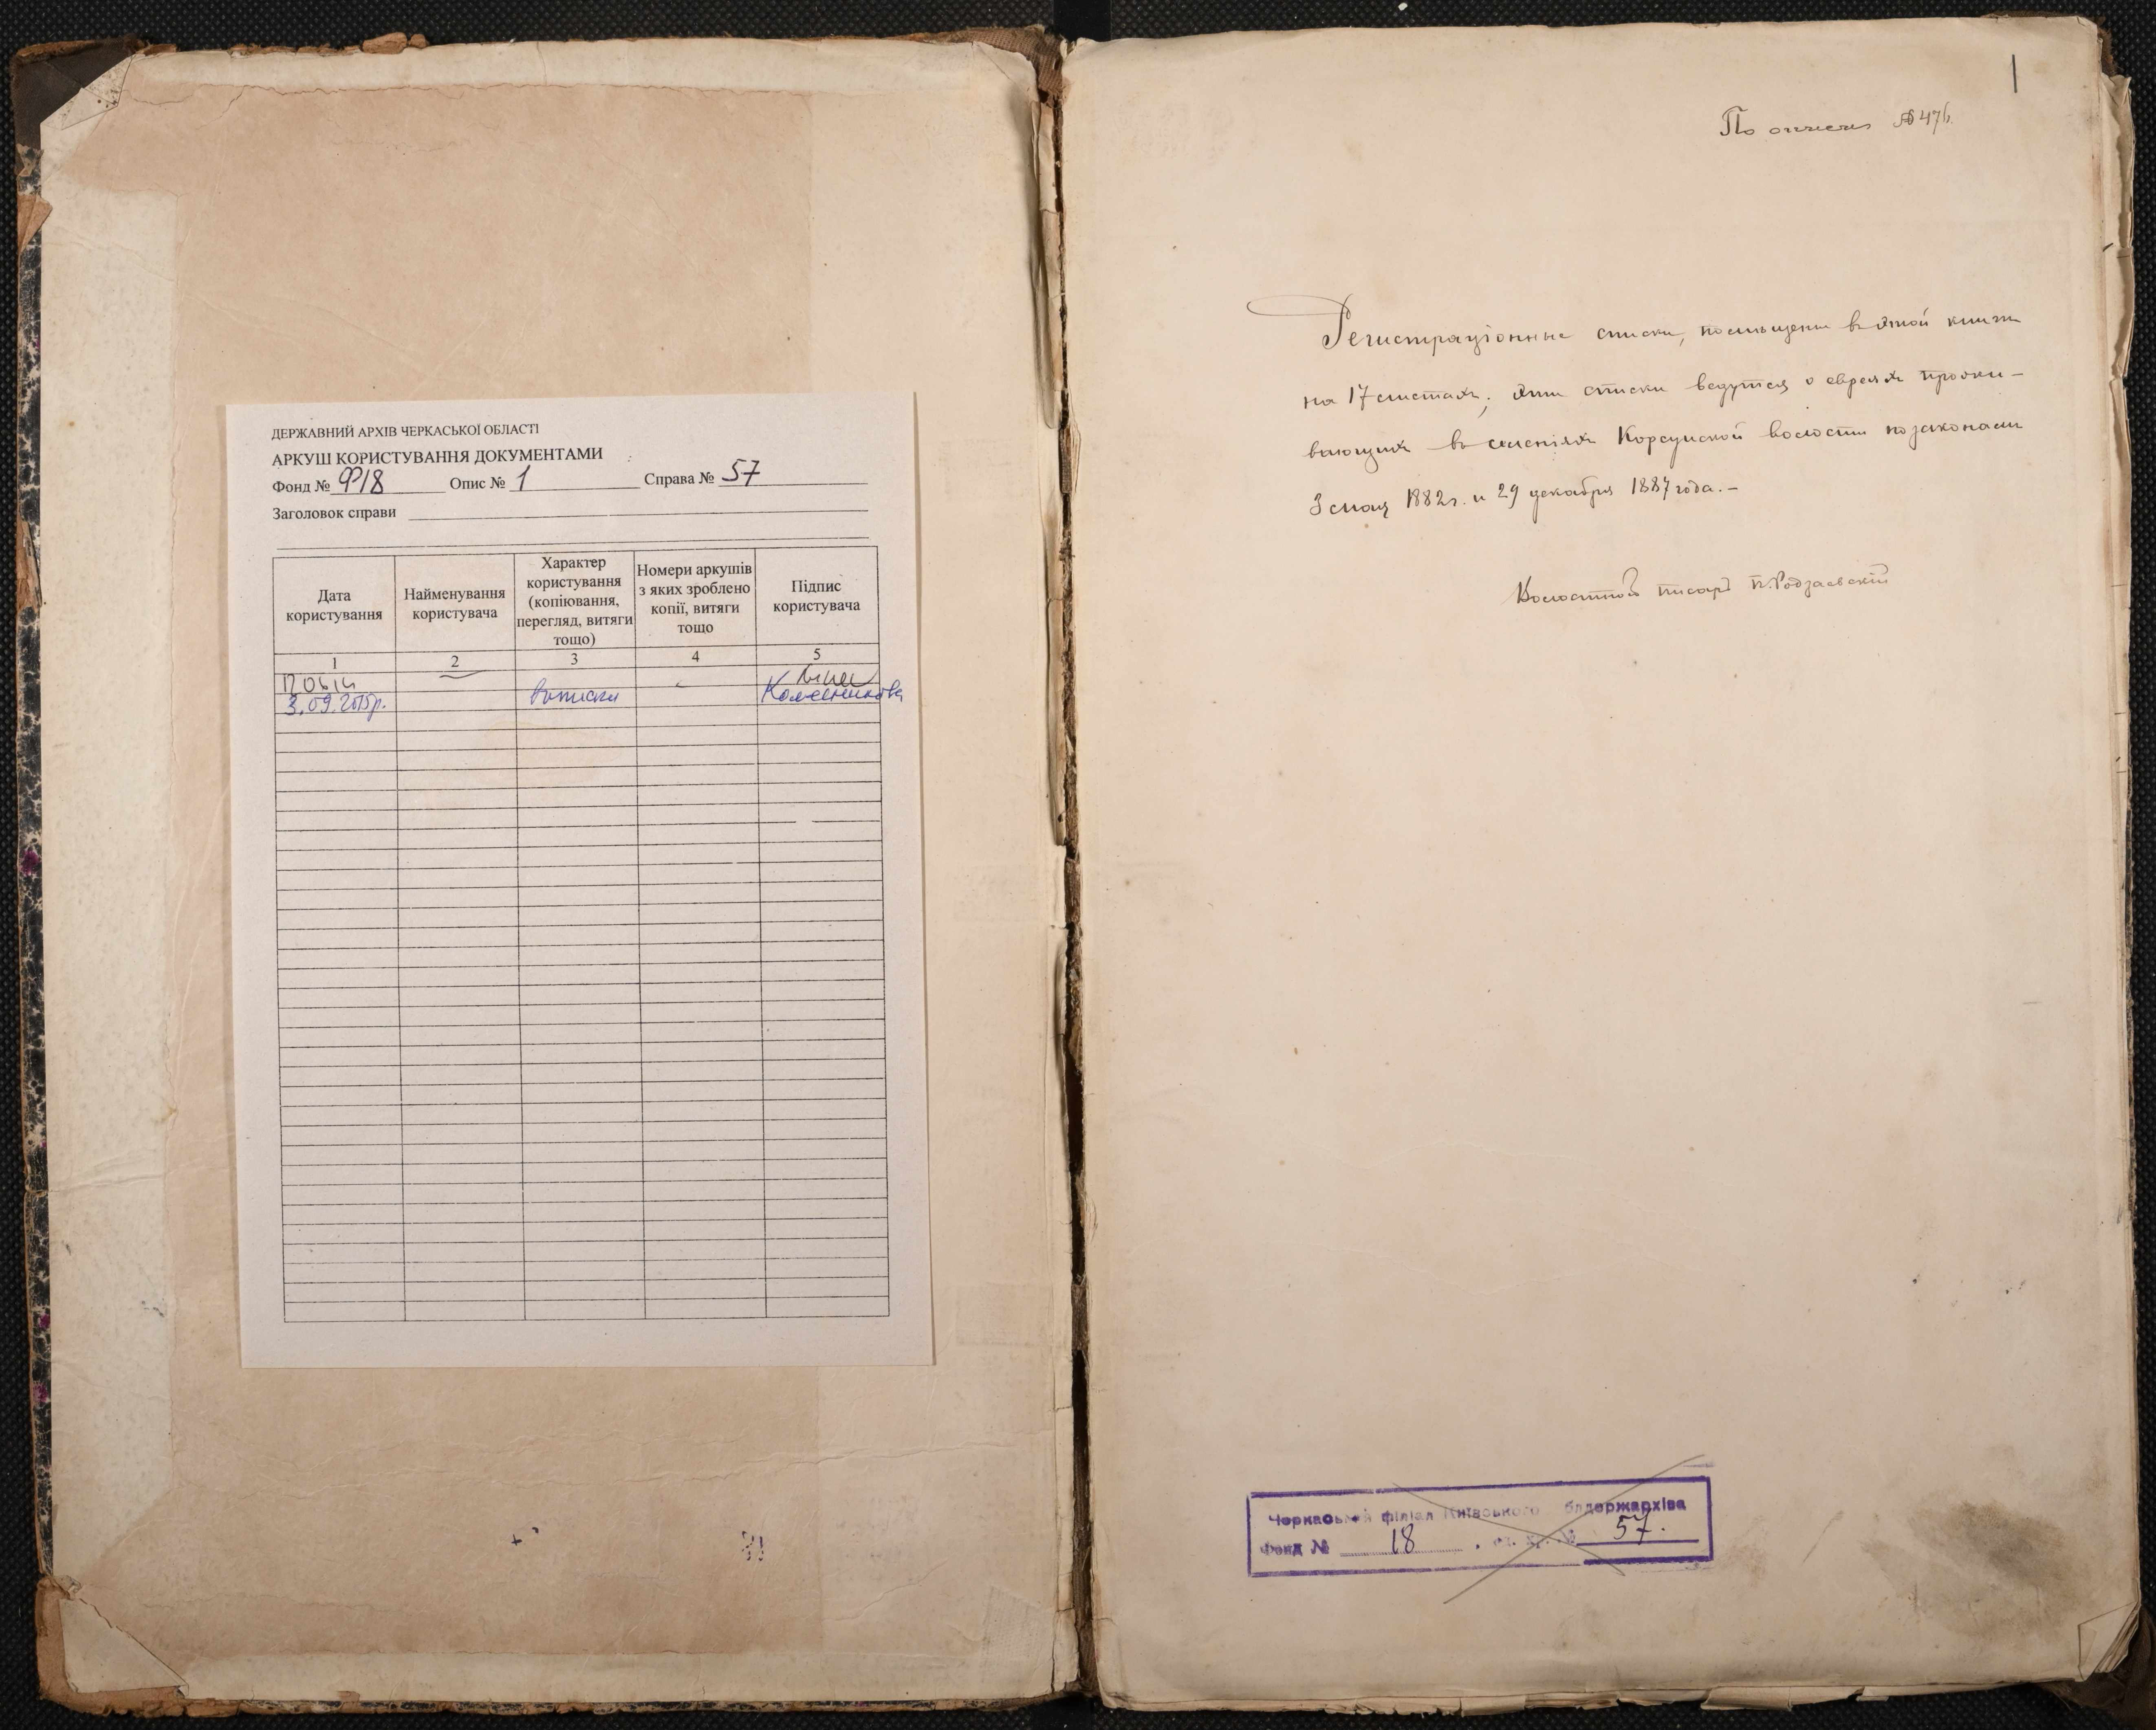 ДЕРЖАВНИЙ АРХІВ ЧЕРКАСЬКОЇ ОБЛАСТІ
АРКУШ КОРИСТУВАННЯ ДОКУМЕНТАМИ
Фонд № ФР18 Опис № 1 Справа № 57
Заголовок справи
Дата користування
Найменування користувача
Характер користування (копіювання, перегляд, витяги тощо)
Номери аркушів з яких зроблено копії, витяги тощо
Підпис користувача
1 2 3 4 5
3.09.2015р. виписки Колесникова
1
По описи № 476.
Регистраціонные списки, помѣщены въ этой книгѣ
на 17 листахъ; эти списки ведутся о евреяхъ прожи-
вающихъ въ селеніяхъ Корсунской волости по законамъ
3 мая 1882 г. и 29 декабря 1887 года. —
Волостной писарь П. Родзаевскій
Черкаський філіал Київського облдержархіва
Фонд № 18. од. хр. № 57.